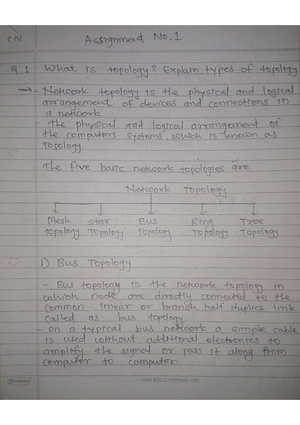 CN
Assignment No.1
Q.1 What is topology? Explain types of topology
→ - Network topology is the physical and logical
arrangement of devices and connections in
a network
- The physical and logical arrangement of
the computers systems. Which is known as
Topology.
The five basic network topologies are
Network Topology
Mesh Star Bus Ring Tree
topology Topology Topology Topology Topology
1) Bus Topology
- Bus topology is the network topology in
which node are directly connected to the
common linear or branch half duplex link
called as bus topology
- on a typical bus network a simple cable
is used without additional electronics to
amplify the signal or pass it along from
computer to computer.